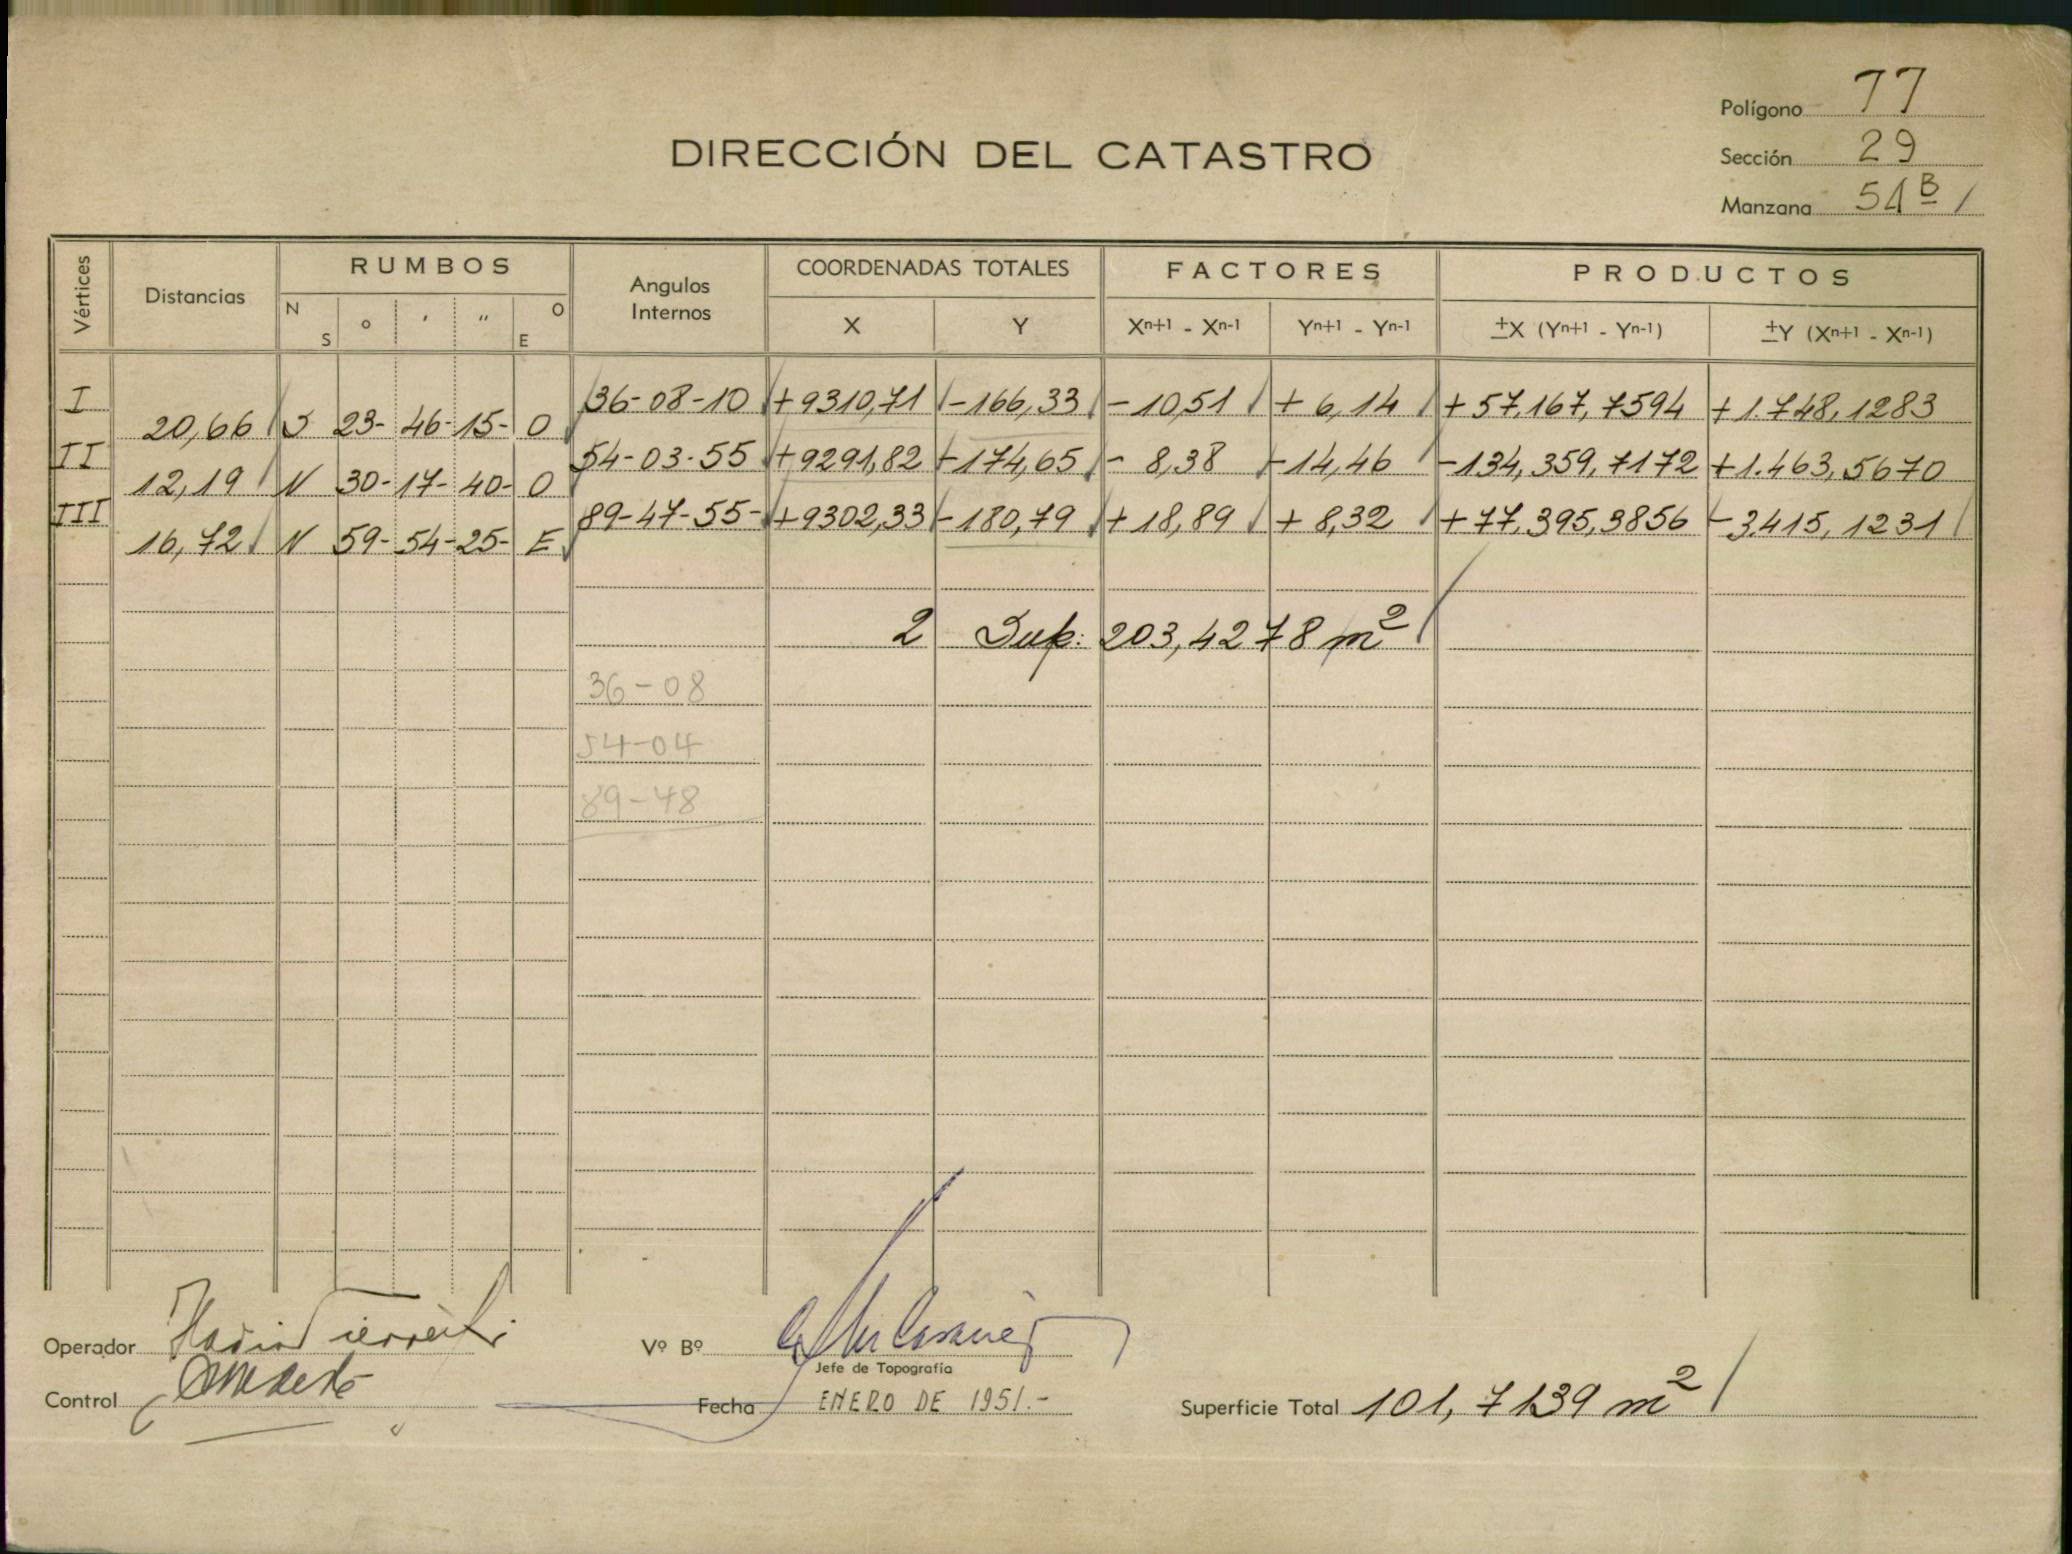 Polígono 77
DIRECCIÓN DEL CATASTRO
Sección 29
Manzana 51 B /
Vértices Distancias RUMBOS Angulos Internos COORDENADAS TOTALES FACTORES PRODUCTOS
N S ° ' " E O X Y Xn+1 - Xn-1 Yn+1 - Yn-1 ±X (Yn+1 - Yn-1) ±Y (Xn+1 - Xn-1)
I 36-08-10 +9310,71 -166,33 -10,51 +6,14 +57.167,7594 +1.748,1283
20,66 S 23- 46- 15- O
II 54-03-55 +9291,82 -174,65 -8,38 -14,46 -134,359,7172 +1.463,5670
12,19 N 30- 17- 40- O
III 89-47-55- +9302,33 -180,79 +18,89 +8,32 +77.395,3856 -3.415,1231
16,72 N 59- 54- 25- E
2 Sup: 203,4278 m²
36-08
54-04
89-48
Operador
Vº Bº
Jefe de Topografía
Control
Fecha ENERO DE 1951.-
Superficie Total 101,7139 m²